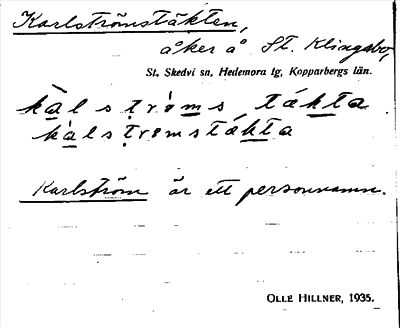 Karlströmstäkten,
åker å St. Klingsbo,
St. Skedvi sn, Hedemora tg, Kopparbergs län.
kàlstrøms tákta
kàlstrømstákta
Karlström är ett personnamn.
OLLE HILLNER, 1935.